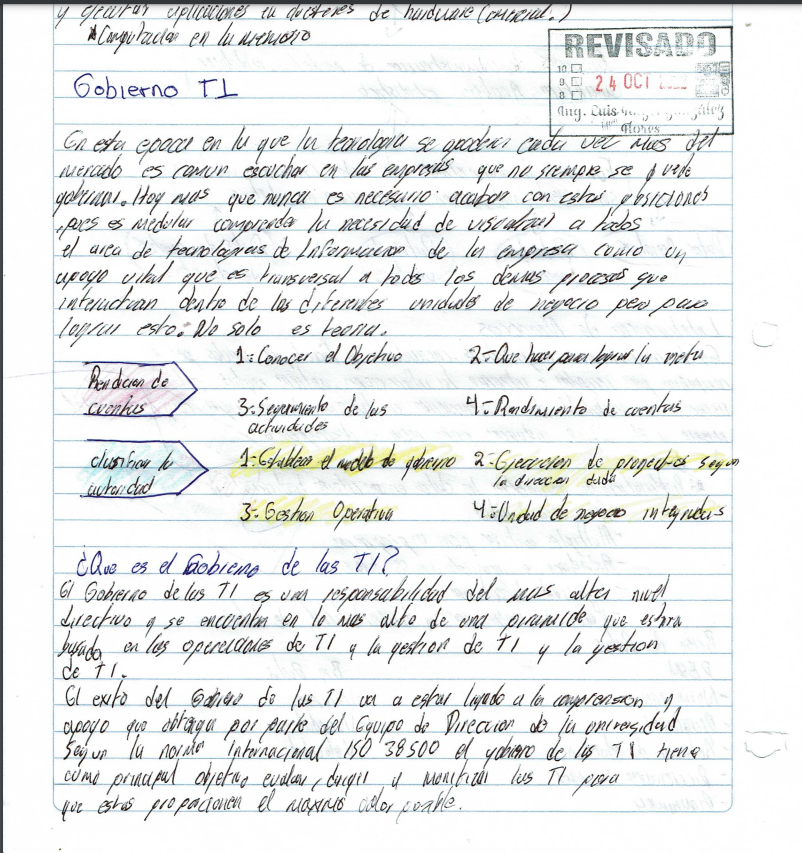 y ejecutar aplicaciones en clusteres de hardware (comercial.)
*Computacion en la memoria
REVISADO
10
9
8
24 OCT
Ing. Luis
Flores
Gobierno TI
En esta epoca en la que la tecnologia se apodera cada vez mas del
mercado es comun escuchar en las empresas que no siempre se puede
gobernar. Hoy mas que nunca es necesario acabar con estas posiciones
, pues es medular comprender la necesidad de visualizar a todos
el area de tecnologias de Informacion de la empresa como un
apoyo vital que es transversal a todos los demas procesos que
interactuan dentro de las diferentes unidades de negocio pero para
lograr esto. No solo es teoria.
Rendicion de
cuentas
1=Conocer el Objetivo
2=Que hacer para lograr la meta
3=Seguimiento de las
actividades
4=Rendimiento de cuentas
clasificar la
autoridad
1=Establecer el modelo de gobierno
2=Ejecucion de proyectos segun
la direccion dada
3=Gestion Operativa
4=Unidad de negocio integradas
¿Que es el Gobierno de las TI?
El Gobierno de las TI es una responsabilidad del mas alto nivel
directivo y se encuentra en lo mas alto de una piramide que estara
basada en las operaciones de TI y la gestion de TI y la gestion
de TI.
El exito del Gobierno de las TI va a estar ligado a la comprension y
apoyo que obtenga por parte del Equipo de Direccion de la universidad
Segun la norma Internacional ISO 38500 el gobierno de las TI tiene
como principal objetivo evaluar, dirigir y monitizar las TI para
que estas proporcionen el maximo valor posible.